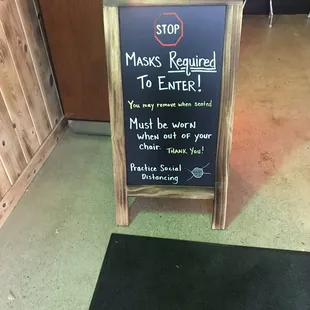 STOP
Masks Required
To Enter!
You may remove when seated
Must be worn
when out of your
chair. Thank You!
Practice Social
Distancing